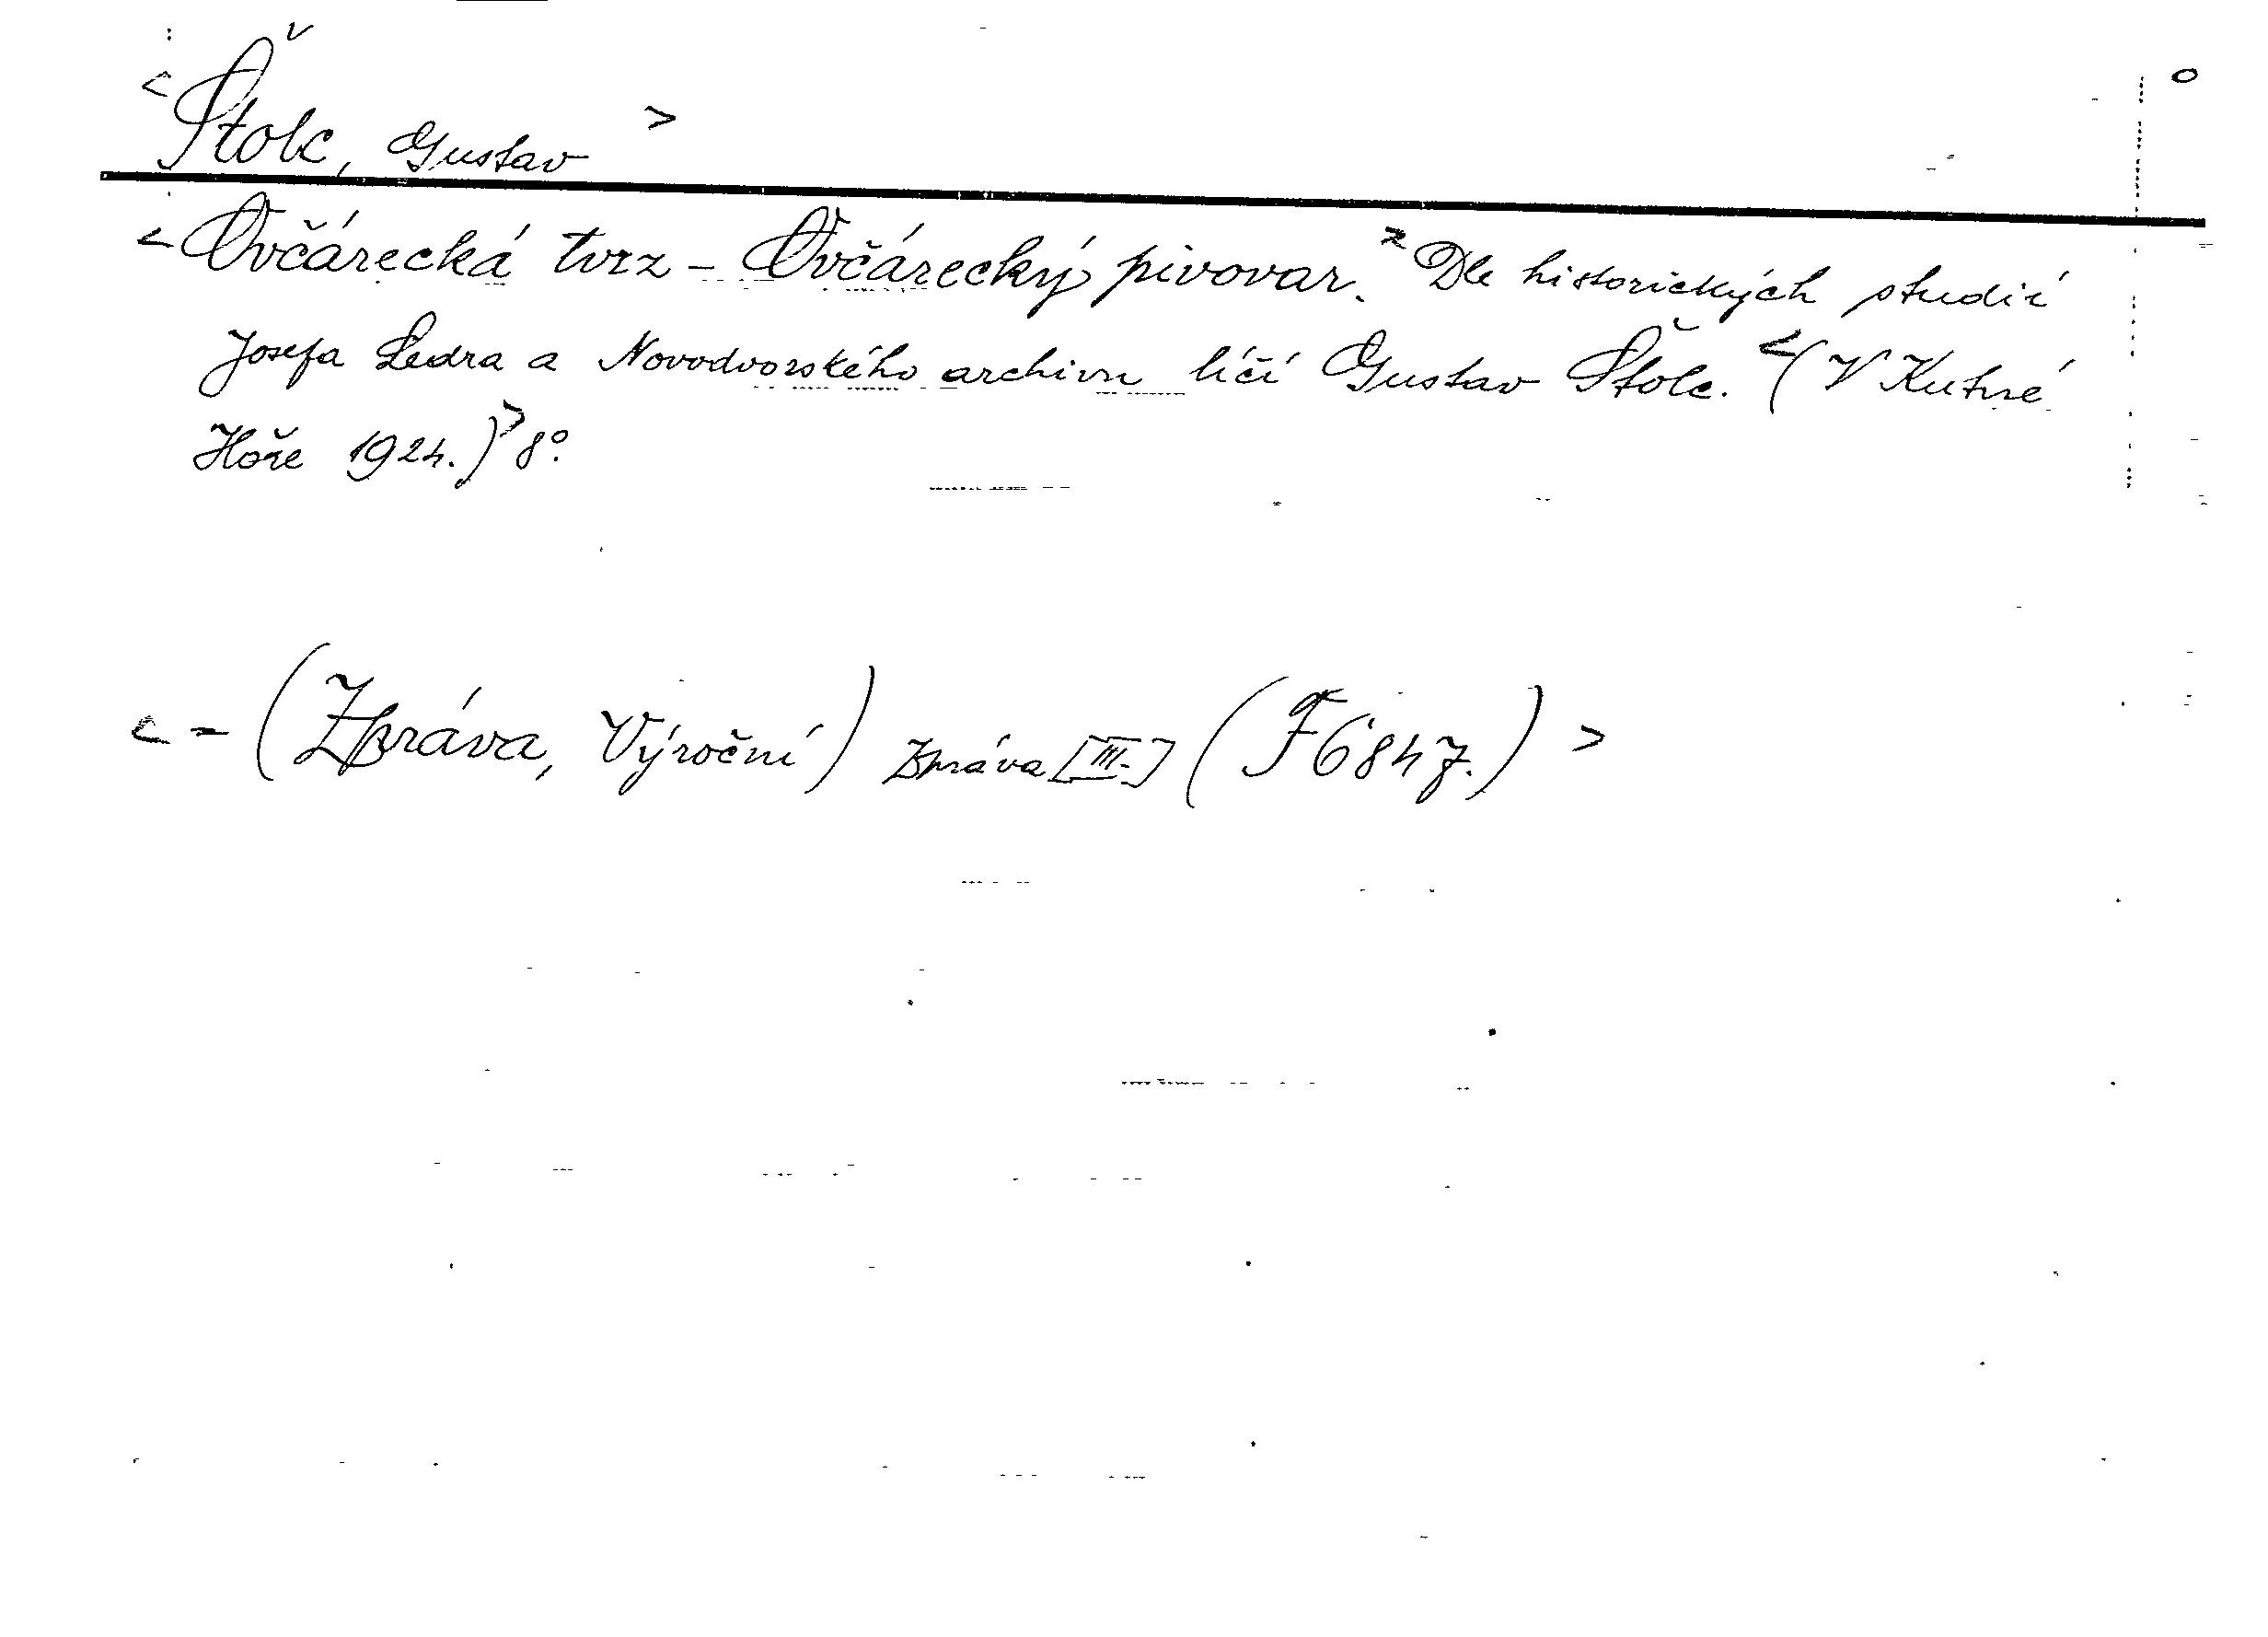 <Štolc, Gustav>
<Ovčárecká tvrz - Ovčárecký pivovar.> Dle historických studií
Josefa Ledra a Novodvorského archivu líčí Gustav Štolc. <(V Kutné
Hoře 1924.)> 8°.
<- (Zpráva, Výroční) Zpráva [III.] (F 6847.)>